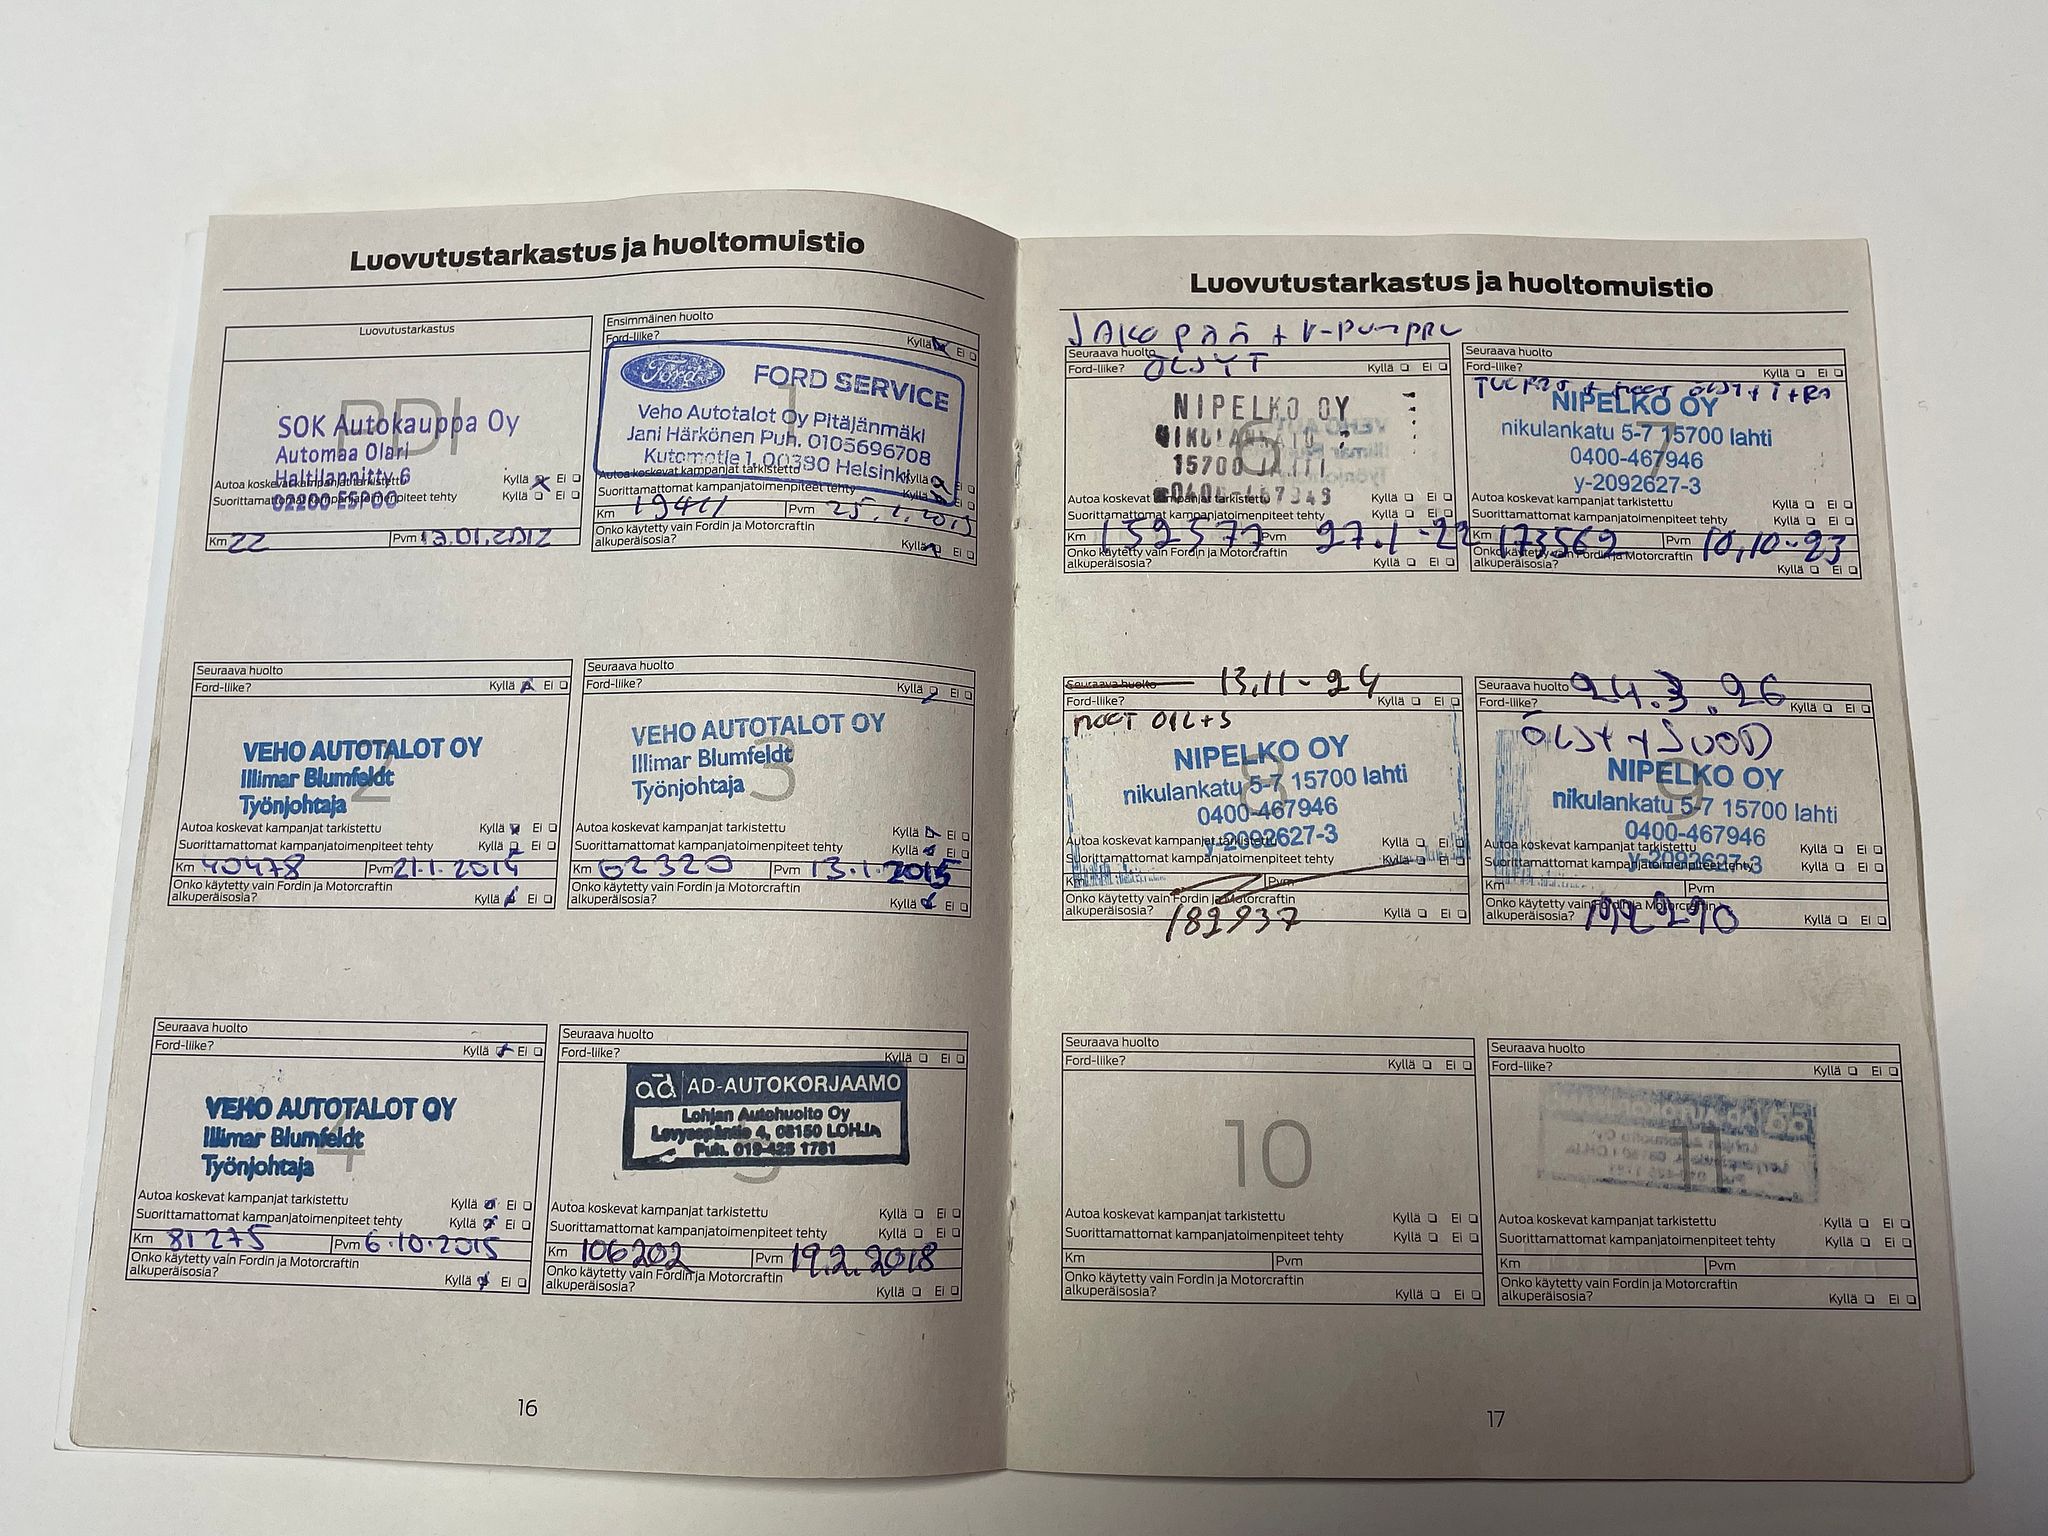 Luovutustarkastus ja huoltomuistio
Luovutustarkastus
PDI
SOK Autokauppa Oy
Automaa Olari
Haltilanniitty 6
02200 ESPOO
Autoa koskevat kampanjat tarkistettu Kyllä Ei
Suorittamattomat kampanjatoimenpiteet tehty Kyllä Ei
Km 22 Pvm .01.2012
Ensimmäinen huolto
Ford-liike? Kyllä Ei
1
Ford FORD SERVICE
Veho Autotalot Oy Pitäjänmäki
Jani Härkönen Puh. 0105696708
Kutomotie 1, 00380 Helsinki
Autoa koskevat kampanjat tarkistettu Kyllä
Suorittamattomat kampanjatoimenpiteet tehty Kyllä
Km 19411 Pvm 25.1.2013
Onko käytetty vain Fordin ja Motorcraftin
alkuperäisosia? Kyllä Ei
Seuraava huolto
Ford-liike? Kyllä Ei
2
VEHO AUTOTALOT OY
Illimar Blumfeldt
Työnjohtaja
Autoa koskevat kampanjat tarkistettu Kyllä Ei
Suorittamattomat kampanjatoimenpiteet tehty Kyllä Ei
Km 40478 Pvm 21.1.2014
Onko käytetty vain Fordin ja Motorcraftin
alkuperäisosia? Kyllä Ei
Seuraava huolto
Ford-liike? Kyllä Ei
3
VEHO AUTOTALOT OY
Illimar Blumfeldt
Työnjohtaja
Autoa koskevat kampanjat tarkistettu Kyllä Ei
Suorittamattomat kampanjatoimenpiteet tehty Kyllä Ei
Km 62320 Pvm 13.1.2015
Onko käytetty vain Fordin ja Motorcraftin
alkuperäisosia? Kyllä Ei
Seuraava huolto
Ford-liike? Kyllä Ei
4
VEHO AUTOTALOT OY
Illimar Blumfeldt
Työnjohtaja
Autoa koskevat kampanjat tarkistettu Kyllä Ei
Suorittamattomat kampanjatoimenpiteet tehty Kyllä Ei
Km 81275 Pvm 6.10.2015
Onko käytetty vain Fordin ja Motorcraftin
alkuperäisosia? Kyllä Ei
Seuraava huolto
Ford-liike? Kyllä Ei
5
ad AD-AUTOKORJAAMO
Lohjan Autohuolto Oy
4, 08150 LOHJA
Puh. 019-425 1781
Autoa koskevat kampanjat tarkistettu Kyllä Ei
Suorittamattomat kampanjatoimenpiteet tehty Kyllä Ei
Km 106202 Pvm 19.2.2018
Onko käytetty vain Fordin ja Motorcraftin
alkuperäisosia? Kyllä Ei
16
Luovutustarkastus ja huoltomuistio
JAKO PÄÄ + V-PUMPPU
Seuraava huolto
Ford-liike? ÖLJYT Kyllä Ei
6
NIPELKO OY
15700
Autoa koskevat kampanjat tarkistettu Kyllä Ei
Suorittamattomat kampanjatoimenpiteet tehty Kyllä Ei
Km 152577 Pvm 27.1-22
Onko käytetty vain Fordin ja Motorcraftin
alkuperäisosia? Kyllä Ei
Seuraava huolto
Ford-liike? Kyllä Ei
7
NIPELKO OY
nikulankatu 5-7 15700 lahti
0400-467946
y-2092627-3
Autoa koskevat kampanjat tarkistettu Kyllä Ei
Suorittamattomat kampanjatoimenpiteet tehty Kyllä Ei
Km 173562 Pvm 10,10-23
Onko käytetty vain Fordin ja Motorcraftin
alkuperäisosia? Kyllä Ei
Seuraava huolto 13,11-24
Ford-liike? Kyllä Ei
8
NIPELKO OY
nikulankatu 5-7 15700 lahti
0400-467946
y-2092627-3
Autoa koskevat kampanjat tarkistettu Kyllä Ei
Suorittamattomat kampanjatoimenpiteet tehty Kyllä Ei
Km Pvm
Onko käytetty vain Fordin ja Motorcraftin
alkuperäisosia? Kyllä Ei
182937
Seuraava huolto 24.3.26
Ford-liike? Kyllä Ei
9
ÖLJY + SUOD
NIPELKO OY
nikulankatu 5-7 15700 lahti
0400-467946
y-2092627-3
Autoa koskevat kampanjat tarkistettu Kyllä Ei
Suorittamattomat kampanjatoimenpiteet tehty Kyllä Ei
Km Pvm
Onko käytetty vain Fordin ja Motorcraftin
alkuperäisosia? Kyllä Ei
Seuraava huolto
Ford-liike? Kyllä Ei
10
Autoa koskevat kampanjat tarkistettu Kyllä Ei
Suorittamattomat kampanjatoimenpiteet tehty Kyllä Ei
Km Pvm
Onko käytetty vain Fordin ja Motorcraftin
alkuperäisosia? Kyllä Ei
Seuraava huolto
Ford-liike? Kyllä Ei
11
Autoa koskevat kampanjat tarkistettu Kyllä Ei
Suorittamattomat kampanjatoimenpiteet tehty Kyllä Ei
Km Pvm
Onko käytetty vain Fordin ja Motorcraftin
alkuperäisosia? Kyllä Ei
17